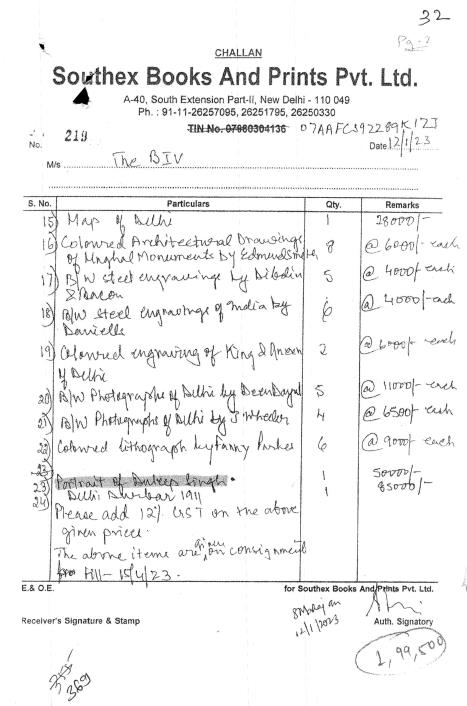 32
Pg-2
CHALLAN
Southex Books And Prints Pvt. Ltd.
A-40, South Extension Part-II, New Delhi - 110 049
Ph. : 91-11-26257095, 26251795, 26250330
TIN No. 07660304136
No. 219
Date 12/1/23
M/s The BIV
S. No. Particulars Qty. Remarks
15) Map of Delhi 1 28000/-
16) Coloured Architectural Drawings 8 @ 6000/- each
of Mughal Monuments by Edmundsmith
17) B/W steel engravings by Dibdin 5 @ 4000/- each
& Bacon
18) B/W Steel engravings of India by 6 @ 4000/- each
Daniells
19) Coloured engraving of King & Queen 2 @ 6000/- each
of Delhi
20) B/W Photographs of Delhi by DeenDayal 5 @ 11000/- each
21) B/W Photographs of Delhi by J Wheeler 4 @ 6500/- each
22) Coloured lithograph by Fanny Parkes 6 @ 9000/- each
23) Portrait of Duleep Singh. 1 50000/-
24) Delhi Durbar 1911 1 85000/-
Please add 12% GST on the above
given prices.
The above items are given on consignment
till - 15/4/23.
E.& O.E. for Southex Books And Prints Pvt. Ltd.
12/1/2023
Receiver's Signature & Stamp Auth. Signatory
1,99,500
369